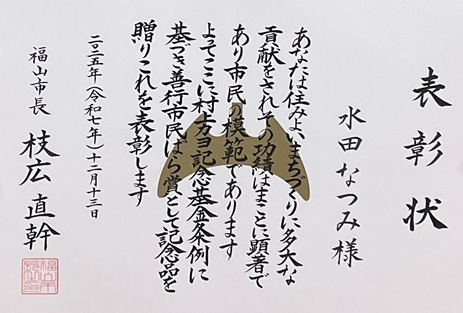 表彰状
水田なつみ様
あなたは住みよいまちづくりに多大な
貢献をされその功績はまことに顕著で
あり市民の模範であります
よってここに村上カヨ記念基金条例に
基づき善行市民ばら賞として記念品を
贈りこれを表彰します
二〇二五年(令和七年)十二月十三日
福山市長 枝広直幹